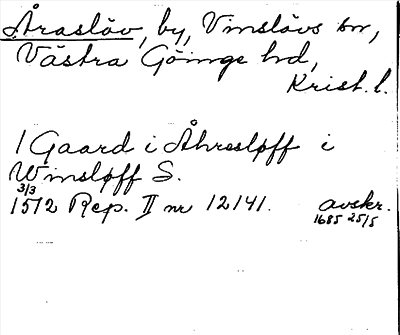 Åraslöv, by, Vinslövs sn,
Västra Göinge hd,
Krist. l.
1 Gaard i Åhrssløff i
Winsløff S.
3/3
1512 Rep. II nr 12141. avskr.
1685 25/5